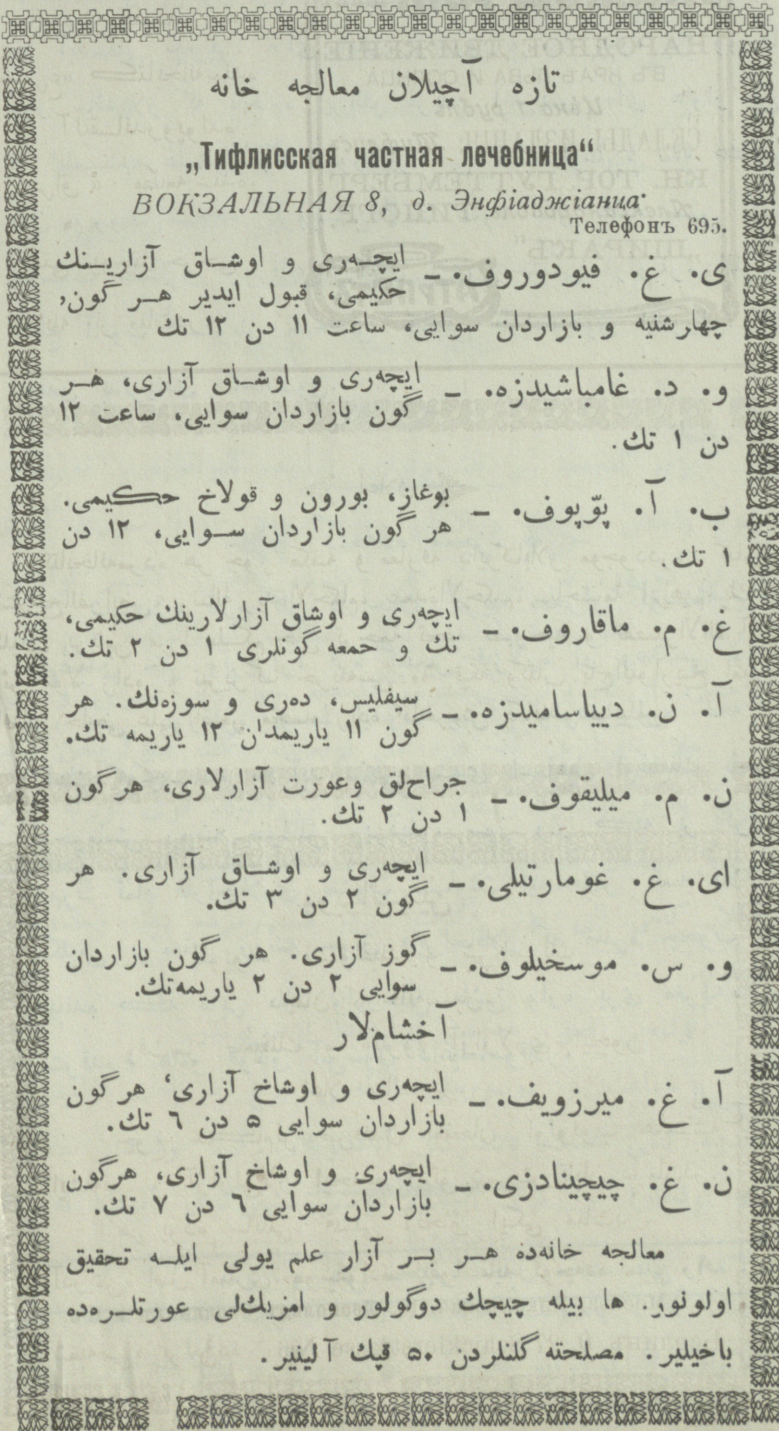 تازه آچیلان معالجه خانه
„Тифлисская частная лечебница“
ВОКЗАЛЬНАЯ 8, д. Энфіаджіанца
Телефонъ 695.
ی. غ. فیودوروف. ـ ایچـهری و اوشـاق آزاریـنك
حكیمی، قبول ایدیر هـر گون,
چهارشنیه و بازاردان سوایی، ساعت ۱۱ دن ۱۲ تك
و. د. غامباشیدزه. ـ ایچهری و اوشـاق آزاری، هـر
گون بازاردان سوایی، ساعت ۱۲
دن ۱ تك.
ب. آ. پوّپوف. ـ بوغاز، بورون و قولاخ حكیمی.
هر گون بازاردان سـوایی، ۱۲ دن
۱ تك.
غ. م. ماقاروف. ـ ایچهری و اوشاق آزارلارینك حكیمی،
تك و جمعه گونلری ۱ دن ۲ تك.
آ. ن. دیباسامیدزه. ـ سیفلیس، دهری و سوزهنك. هر
گون ۱۱ یاریمدان ۱۲ یاریمه تك.
ن. م. میلیقوف. ـ جراحلق وعورت آزارلاری، هرگون
۱ دن ۲ تك.
ای. غ. غومارتیلی. ـ ایچهری و اوشـاق آزاری. هر
گون ۲ دن ۳ تك.
و. س. موسخیلوف. ـ گوز آزاری. هر گون بازاردان
سوایی ۲ دن ۲ یاریمهتك.
آخشاملار
آ. غ. میرزویف. ـ ایچهری و اوشاخ آزاری، هرگون
بازاردان سوایی ۵ دن ٦ تك.
ن. غ. چیچینادزی. ـ ایچهری و اوشاخ آزاری، هرگون
بازاردان سوایی ٦ دن ۷ تك.
معالجه خانهده هـر بـر آزار علم یولی ایلـه تحقیق
اولونور. ها بیله چیچك دوگولور و امزیكلی عورتلـرهده
باخیلیر. مصلحته گلنلردن ۵۰ قپك آلینیر.